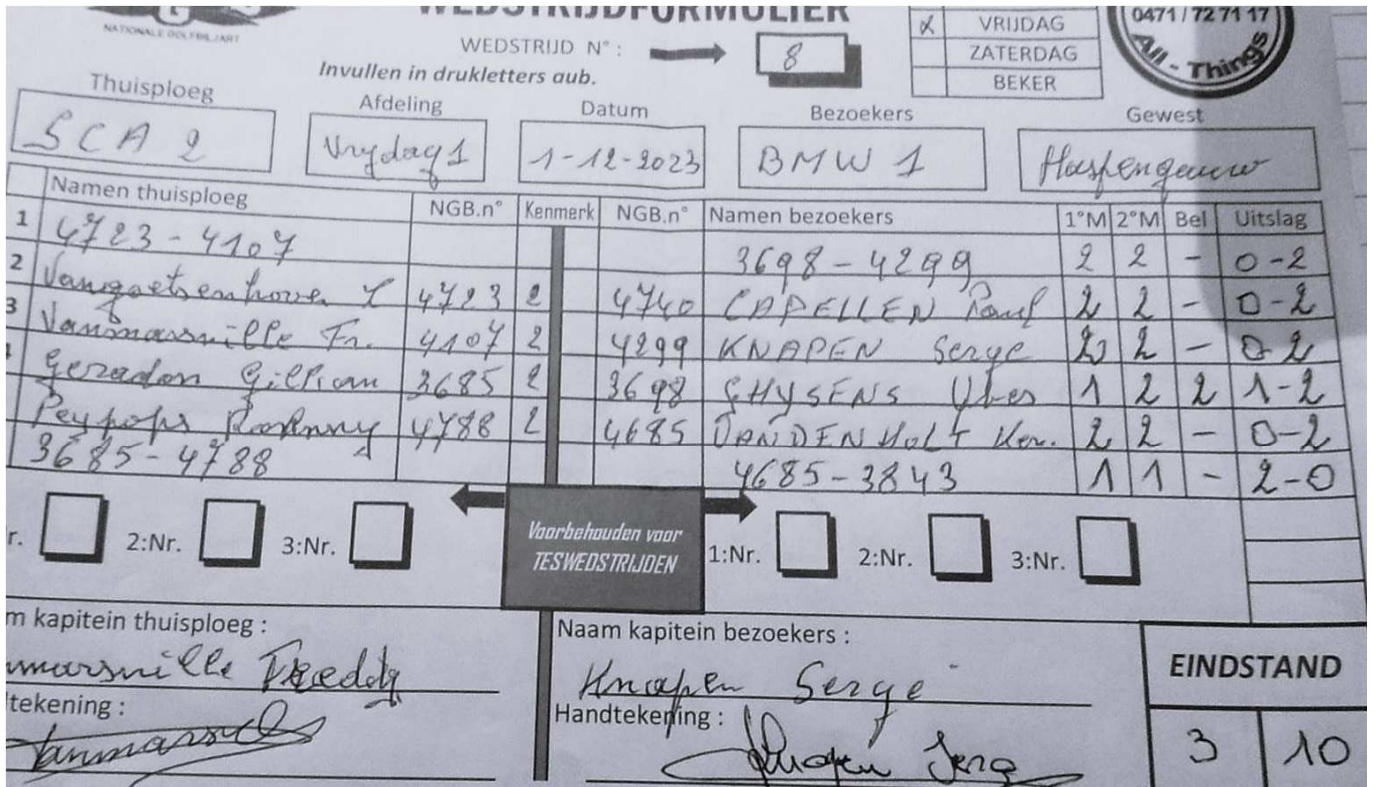 NATIONALE GOLFBILJART
WEDSTRIJDFORMULIER
WEDSTRIJD N° : 8
Invullen in drukletters aub.
VRIJDAG
ZATERDAG
BEKER
0471 / 72 71 17
All - Things
Thuisploeg Afdeling Datum Bezoekers Gewest
SCA 2 Vrydag 1 1-12-2023 BMW 1 Haspengauw
Namen thuisploeg NGB.n° Kenmerk NGB.n° Namen bezoekers 1°M 2°M Bel Uitslag
1 4723 - 4107 3698 - 4299 2 2 - 0-2
2 Vangoetsenhoven 4723 2 4740 CAPELLEN Paul 2 2 - 0-2
3 Vanmarsnille Fr. 4107 2 4299 KNAPEN Serge 2 2 - 0-2
Geradon Gillian 3685 2 3698 GHYSENS Yves 1 2 2 1-2
4788 2 4685 VANDENHOLT Ken. 2 2 - 0-2
3685-4788 4685-3843 1 1 - 2-0
r. 2:Nr. 3:Nr. Voorbehouden voor TESWEDSTRIJDEN 1:Nr. 2:Nr. 3:Nr.
m kapitein thuisploeg : Naam kapitein bezoekers :
nmarsnille Freddy Knapen Serge
tekening : Handtekening :
EINDSTAND
3 10